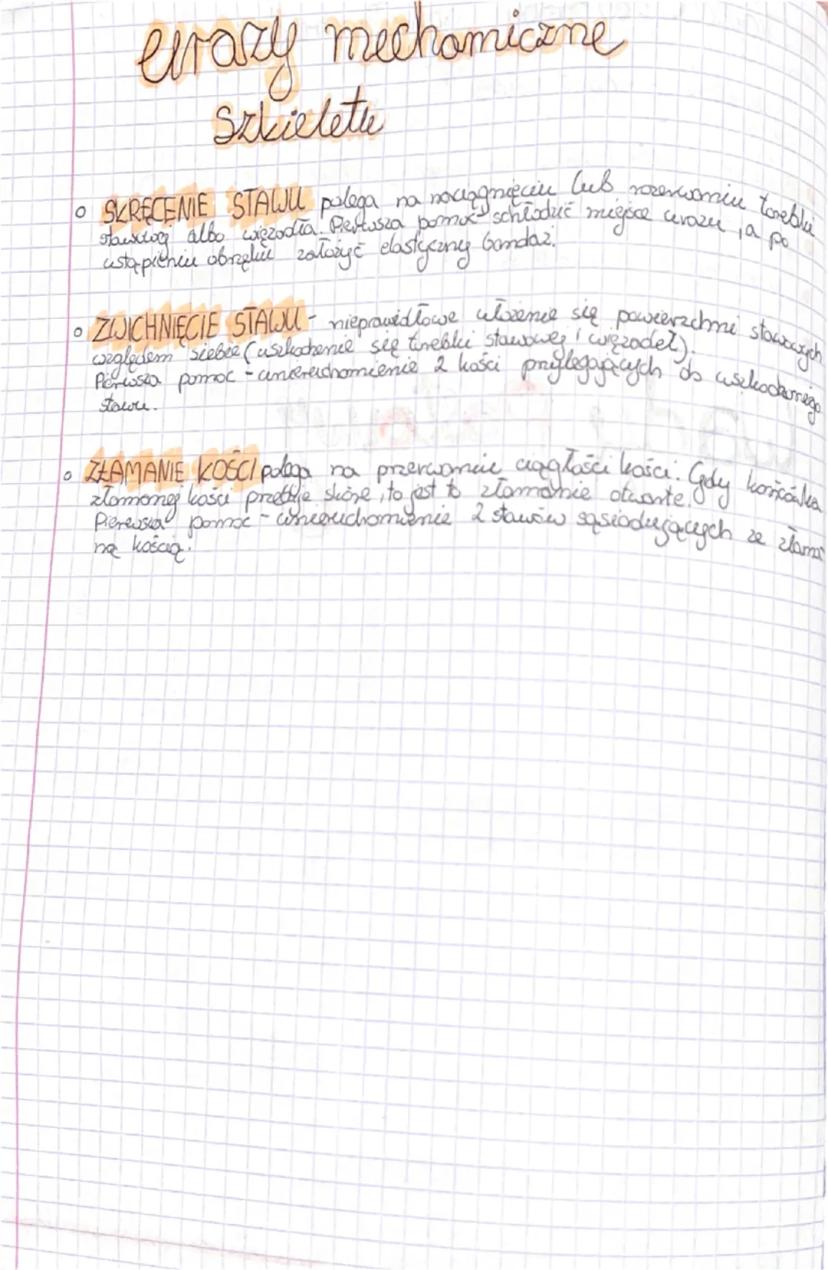 urazy mechaniczne
szkieletu
SKRĘCENIE STAWU polega na naciągnięciu lub rozerwaniu torebki
stawowej albo więzadła. Pierwsza pomoc schłodzić miejsce urazu, a po
ustąpieniu obrzęku założyć elastyczny bandaż.
ZWICHNIĘCIE STAWU - nieprawidłowe ułożenie się powierzchni stawowych
względem siebie (uszkodzenie się torebki stawowej i więzadeł).
Pierwsza pomoc - unieruchomienie 2 kości przylegających do uszkodzonego
stawu.
ZŁAMANIE KOŚCI polega na przerwaniu ciągłości kości. Gdy końcówka
złamanej kości przebije skórę, to jest to złamanie otwarte.
Pierwsza pomoc - unieruchomienie 2 stawów sąsiadujących ze złama
ną kością.